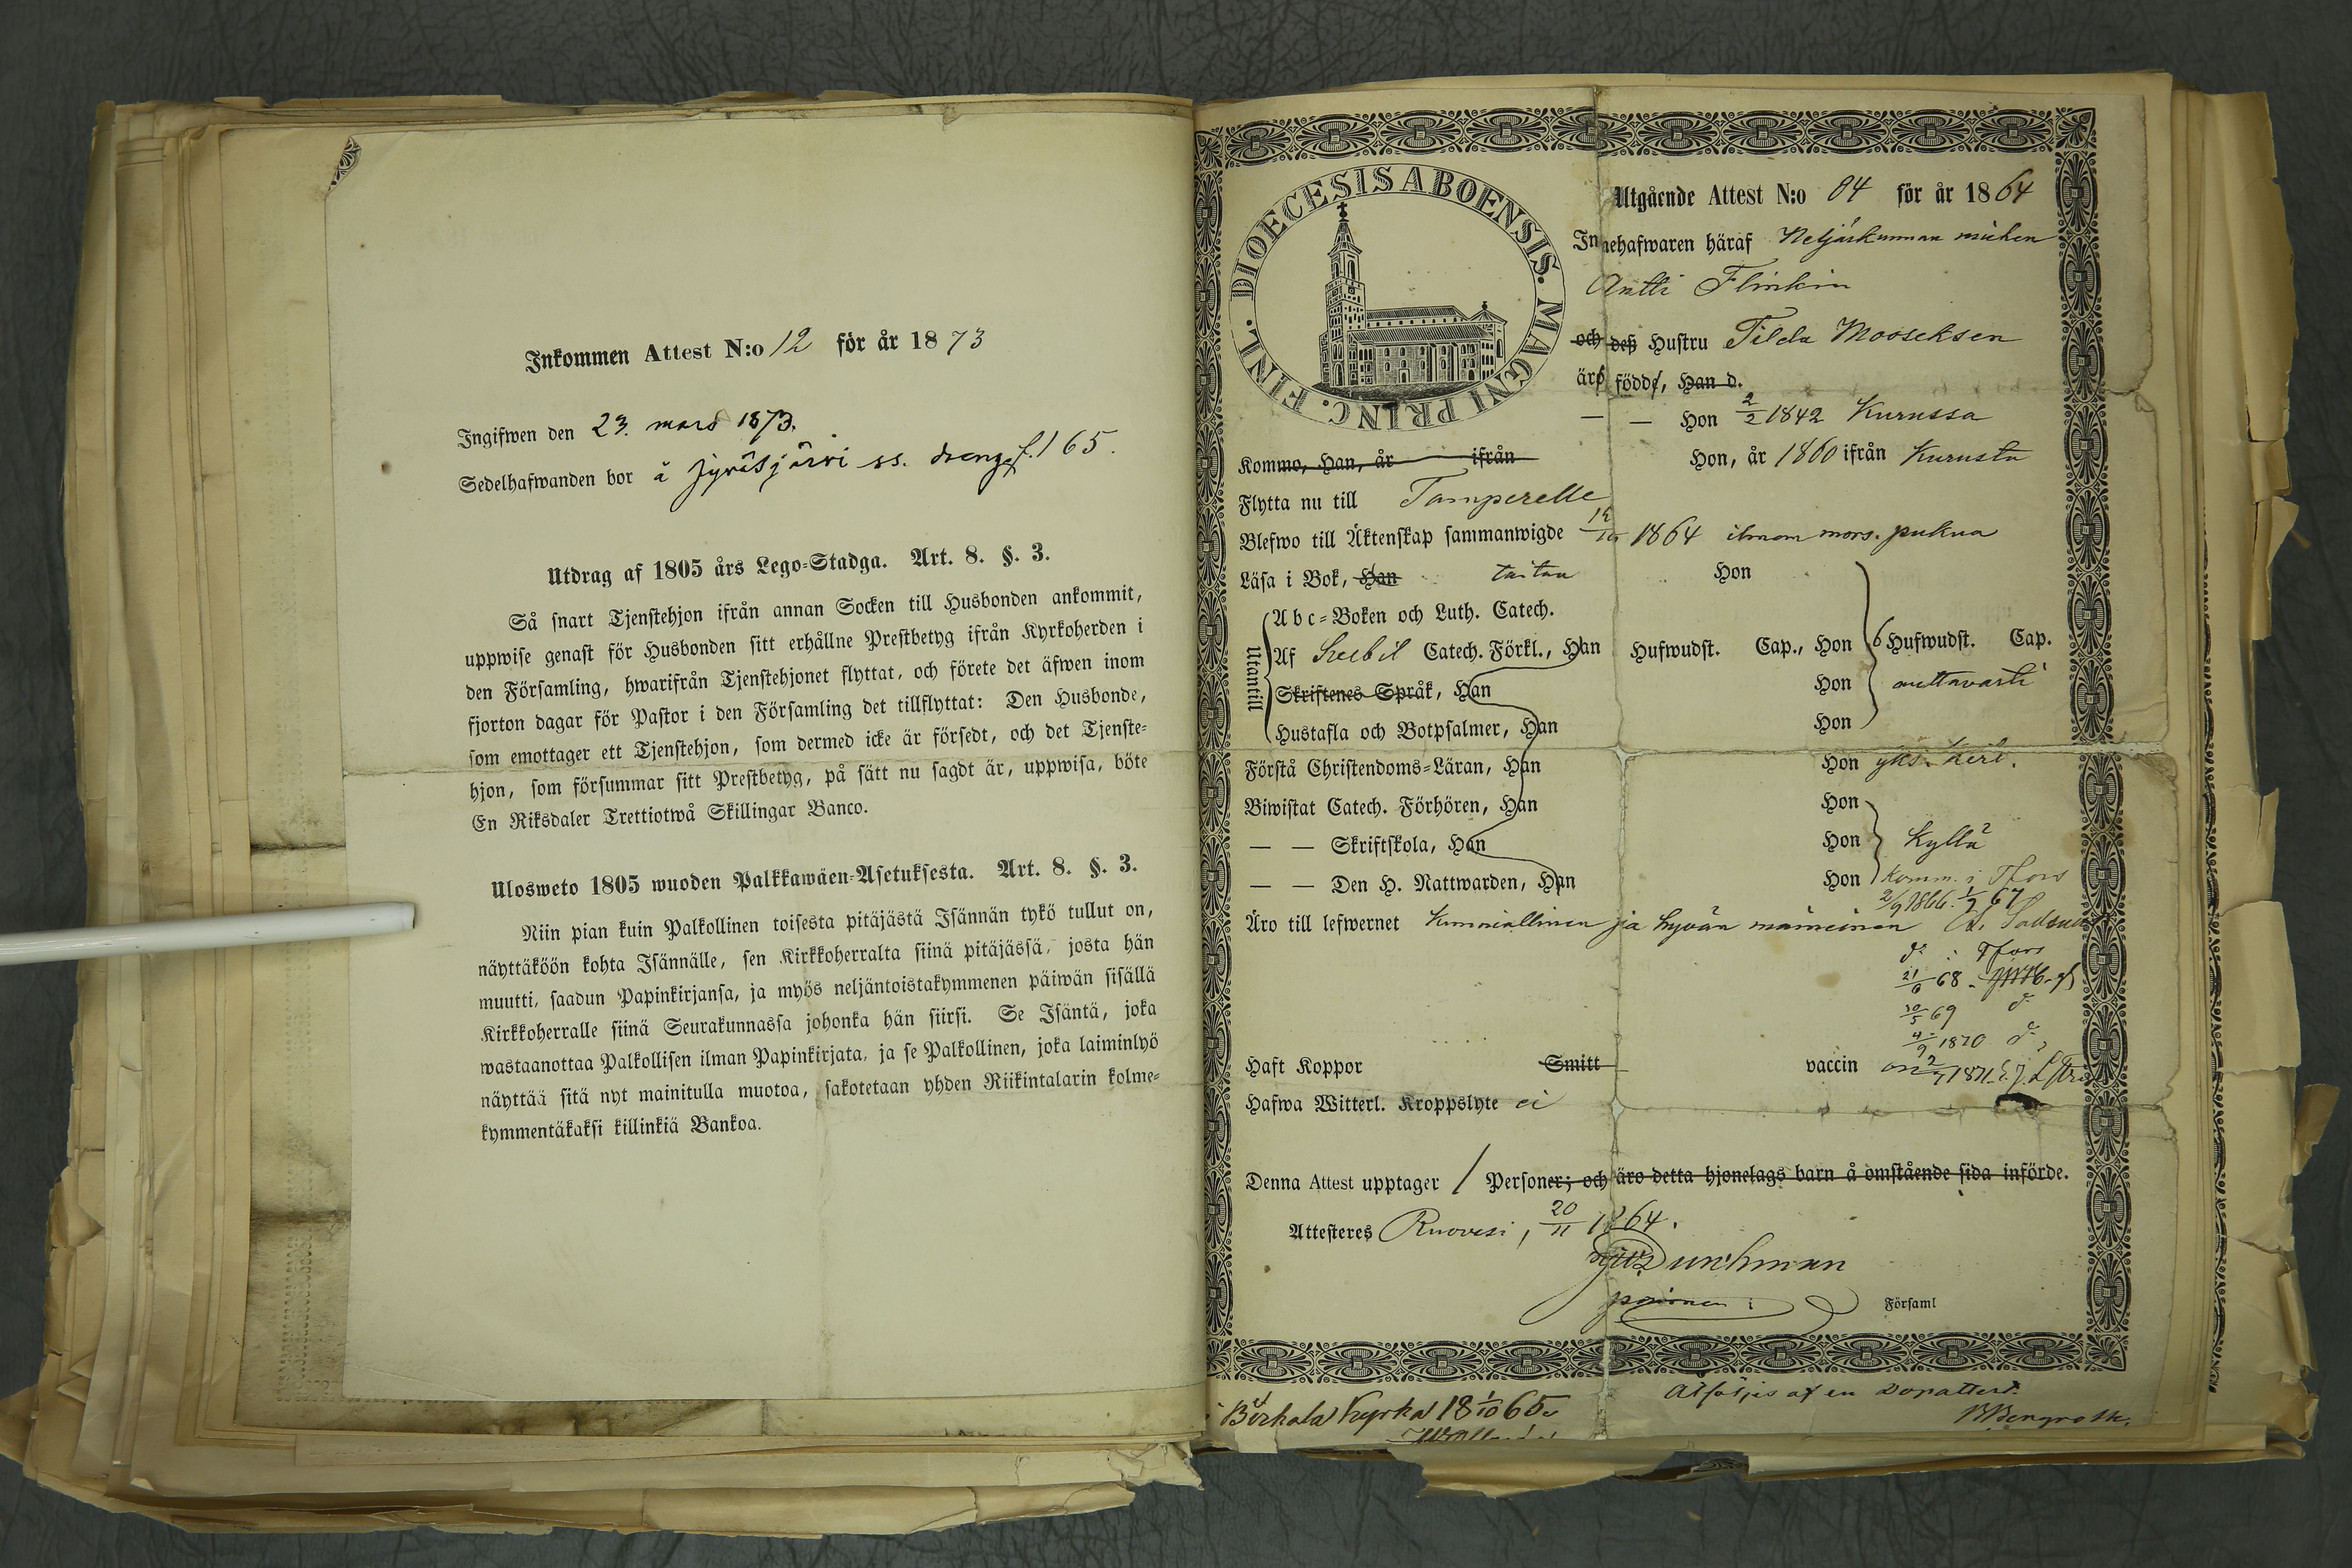 Inkommen Attest N:o 12 för år 1873
Ingifwen den 23. mars 1873.
Sedelhafwanden bor å Jyväsjärvi ss. dräng f. 165.
Utdrag af 1805 års Lego-Stadga. Art. 8. §. 3.
Så snart Tjenstehjon ifrån annan Socken till Husbonden ankommit,
uppwise genast för Husbonden sitt erhållne Prestbetyg ifrån Kyrkoherden i
den Församling, hwarifrån Tjenstehjonet flyttat, och förete det äfwen inom
fjorton dagar för Pastor i den Församling det tillflyttat: Den Husbonde,
som emottager ett Tjenstehjon, som dermed icke är försedt, och det Tjenste-
hjon, som försummar sitt Prestbetyg, på sätt nu sagdt är, uppwisa, böte
En Riksdaler Trettiotwå Skillingar Banco.
Ulosweto 1805 wuoden Palkkawäen-Asetuksesta. Art. 8. §. 3.
Niin pian kuin Palkollinen toisesta pitäjästä Isännän tykö tullut on,
näyttäköön kohta Isännälle, sen Kirkkoherralta siinä pitäjässä, josta hän
muutti, saadun Papinkirjansa, ja myös neljäntoistakymmenen päiwän sisällä
Kirkkoherralle siinä Seurakunnassa johonka hän siirsi. Se Isäntä, joka
wastaanottaa Palkollisen ilman Papinkirjata, ja se Palkollinen, joka laiminlyö
näyttää sitä nyt mainitulla muotoa, sakotetaan yhden Riikintalarin kolme-
kymmentäkaksi killinkiä Bankoa.
DIOECESIS ABOENSIS. MAGNI PRINC. FINL.
Utgående Attest N:o 84 för år 1864
Innehafwaren häraf Neljäskunnan miehen
Antti Flinkin
och deß Hustru Tilda Mooseksen
äro födde, Han d.
— — Hon 2/2 1842 Kurussa
Kommo, Han, år ifrån Hon, år 1860 ifrån Kurusta
Flytta nu till Tamperelle
Blefwo till Äktenskap sammanwigde 1864 ilman mors. pukua
Läsa i Bok, Han taitaa Hon
Utantill
Abc-Boken och Luth. Catech.
Af Seebil Catech. Förkl., Han Hufwudst. Cap., Hon 6 Hufwudst. Cap.
Skriftenes Språk, Han Hon auttavasti
Hustafla och Botpsalmer, Han Hon
Förstå Christendoms-Läran, Han Hon yks. kert.
Biwistat Catech. Förhören, Han Hon
— — Skriftskola, Han Hon kyllä
— — Den H. Nattwarden, Han Hon Komm. i Tfors
2/9 1866. 1/9 67
Äro till lefwernet Kunniallinen ja hyvän maineinen
d:o i Tfors
21/6 68
30/5 69 d:o
4/9 1870 d:o
Haft Koppor Smitt vaccin on
Hafwa Witterl. Kroppslyte ei
Denna Attest upptager 1 Personer; och äro detta hjonelags barn å omstående sida införde.
Attesteres Ruovesi, 20/11 1864.
Dunchman
Församl
Birkala kyrka 18 1/10 65.
Åtföljes af en
Bengroth.